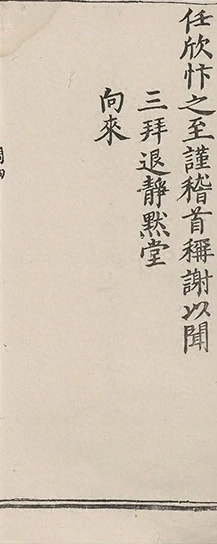 任欣忭之至謹稽首稱謝以聞
三拜退靜默堂
向來